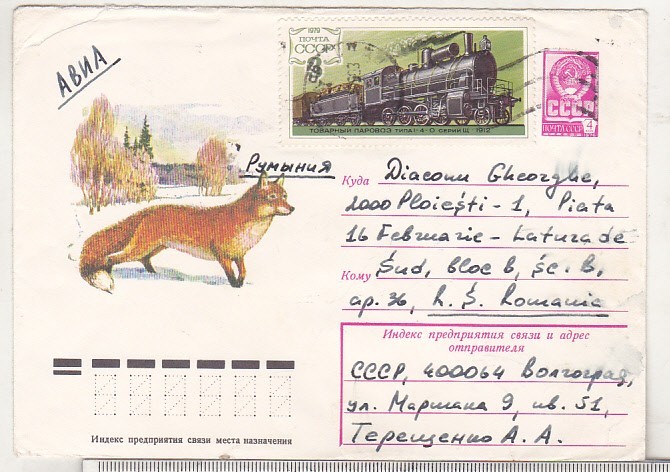 АВИА
1979
ПОЧТА
СССР
ТОВАРНЫЙ ПАРОВОЗ ТИПА 1-4-0 СЕРИИ Щ 1912
СССР
ПОЧТА СССР 4
Румыния
Куда Diaconu Gheorghe,
2000 Ploieşti - 1, Piata
16 Februarie - Latura de
Кому Śud, bloc B, śc. B,
ap. 36, R. Ş. Romania
Индекс предприятия связи и адрес
отправителя
СССР, 400064 Волгоград,
ул. Маршала 9, кв. 51,
Терещенко А. А.
Индекс предприятия связи места назначения